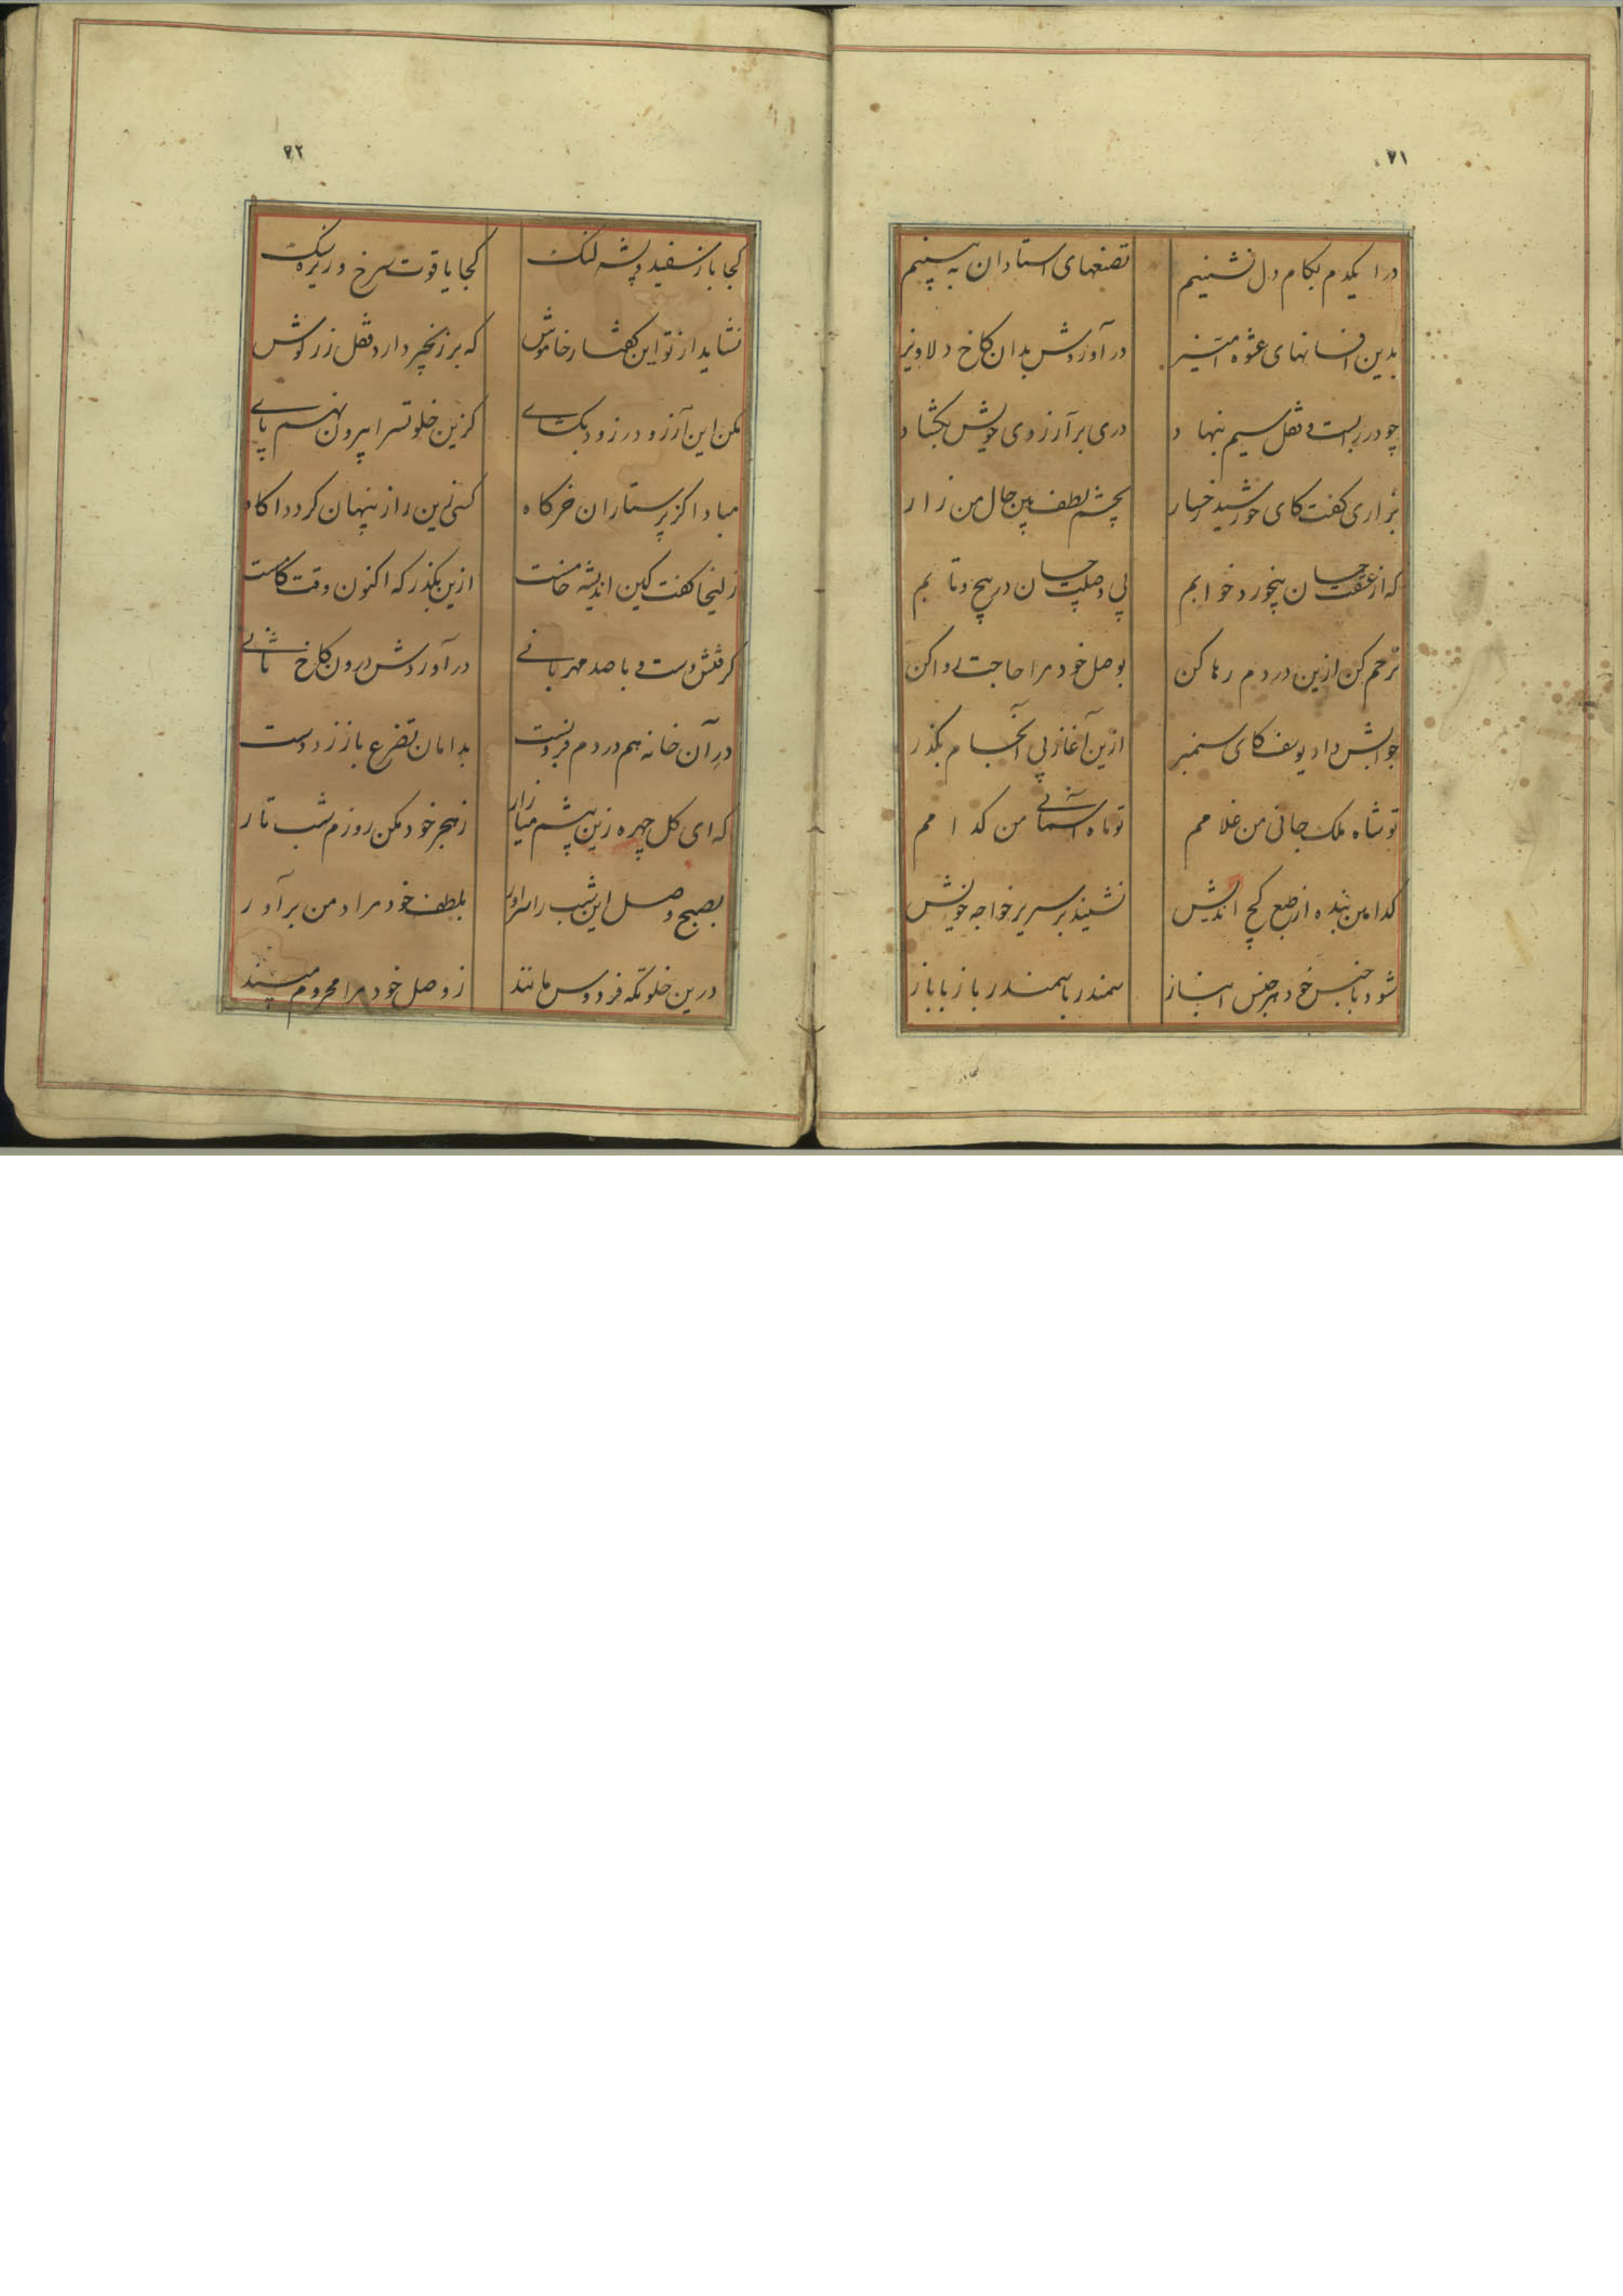 ۷۱
درا یکدم بکام دل نشینیم تصنعهای استادان به بینیم
بدین افسانهای عشوه آمیز در آوردش بدان کاخ دلاویز
چو در بربست و قفل سیم بنهاد دری بر آرزوی خویش بکشاد
بزاری کفت کای خورشید رخسار بچشم لطف بین حال من زار
که از عشقت چسان بیخورد خوابم پی وصلت چسان در پیچ و تابم
ترحم کن ازین دردم رها کن بوصل خود مرا حاجت روا کن
جوابش داد یوسف کای سمنبر ازین آغاز بی انجام بکذر
تو شاه ملک جانی من غلامم تو ماه آسمانی من کدامم
کدامین بنده از طبع کج اندیش نشیند بر سریر خواجه خویش
شود با جنس خود هر جنس انباز سمندر با سمندر باز با باز
۷۲
کجا باز سفید و پشه لنک کجا یاقوت سرخ و ریزه سنک
نشاید از تو این کفتار خاموش که بر زنجیر دارد قفل زر کوش
مکن این آرزو در زود بکشای کزین خلوتسرا بیرون نهم پای
مبادا کز پرستاران خرکاه کسی زین راز پنهان کردد اکاه
زلیخا کفت کین اندیشه خامست ازین بکذر که اکنون وقت کامست
کرفتش دست و با صد مهربانی در آوردش درون کاخ ثانی
در آن خانه هم در دم فروبست بدامان تضرع باز زد دست
که ای کل چهره زین بیشم میازار ز هجر خود مکن روزم شب تار
بصبح وصل این شب را سرآور بلطف خود مراد من برآور
درین خلوتکه فردوس مانند ز وصل خود مرا محروم مپسند